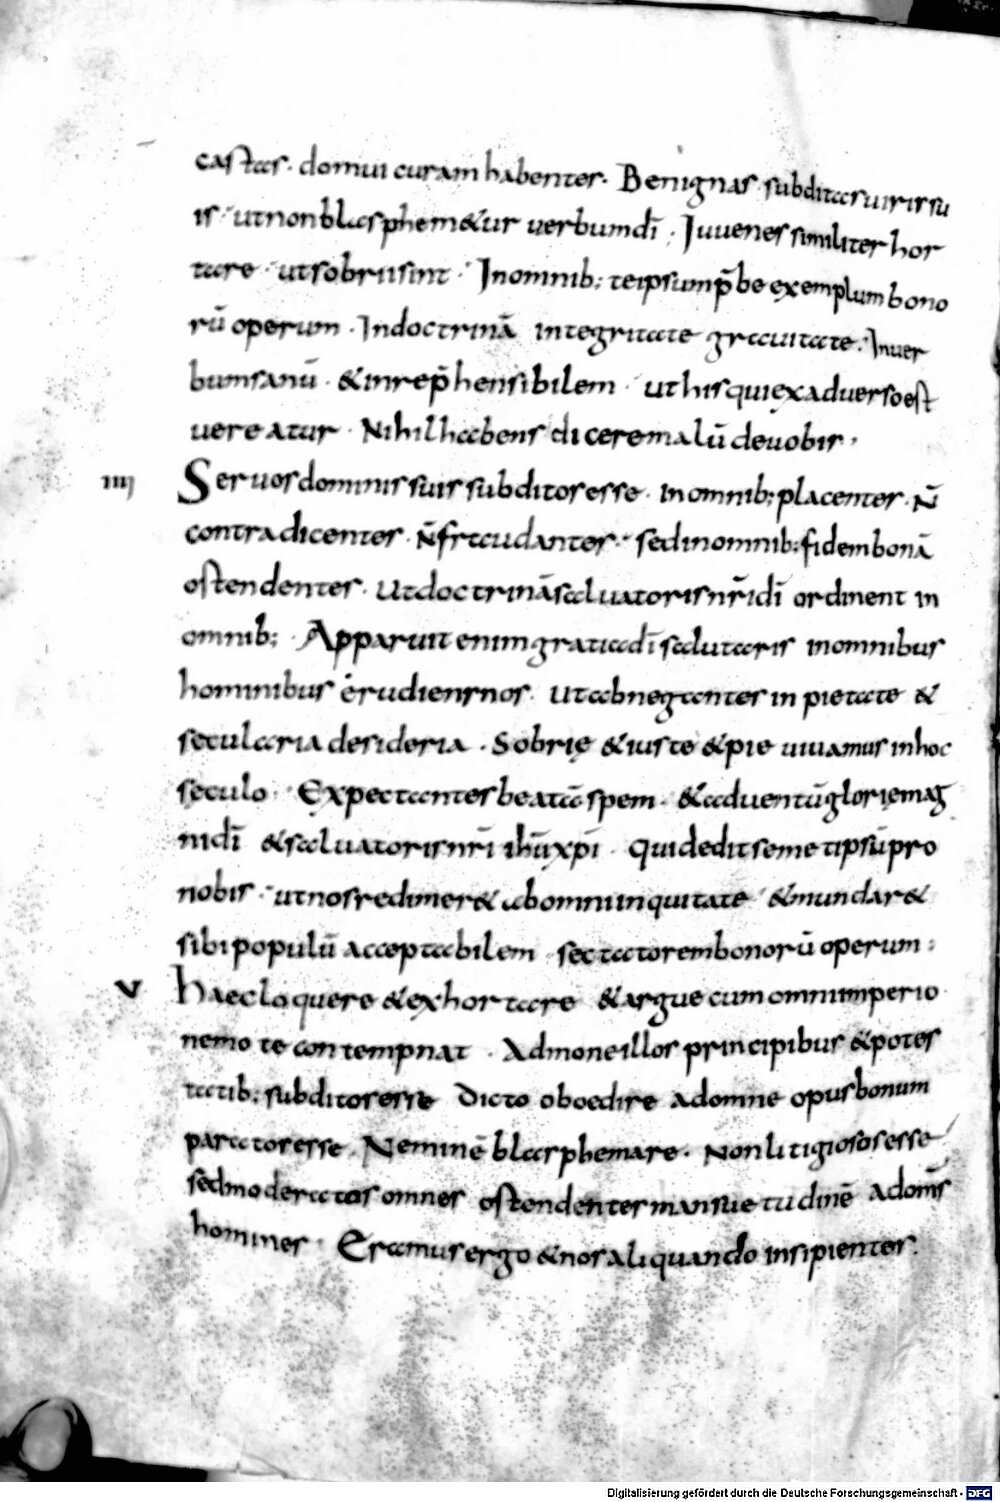 castas · domui curam habentes · Benignas · subditas uiris su
is · ut non blasphem& ur verbum dī · Iuuenes similiter hor
tare · ut sobrii sint · In omnib; te ipsum p̄be exemplum bono
rū operum · In doctrinā integritate grauitate · In uer
bum sanū · & inrep̄hensibilem · ut his qui ex aduerso est
uereatur · Nihil habens dicere malū de uobis ·
IIII Seruos dominis suis subditos esse · in omnib; placentes · N̄
contradicentes · N̄ fraudantes · sed in omnib; fidem bonā
ostendentes · Ut doctrinā saluatoris nr̄i dī ordinent in
omnib; · Apparuit enim gratia dī salutaris in omnibus
hominibus erudiens nos · ut abnegantes inpietate &
secularia desideria · Sobrie & iuste & pie uiuamus in hoc
seculo · Expectantes beatā spem · & aduentū glorie mag
ni dī & saluatoris nr̄i ihū xpī · qui dedit semetipsū pro
nobis · ut nos redimer& ab omni inquitate · & mundar&
sibi populū acceptabilem sectatorem bonorū operum ·
V Haec loquere & exhortare & argue cum omni imperio
nemo te contempnat · Admone illos principibus & potes
tatib; subditos esse Dicto oboedire ad omne opus bonum
paratos esse · Neminē blasphemare · Non litigiosos esse
sed moderatos omnes ostendentes mansuetudinē ad om̄s
homines · Eramus ergo & nos aliquando insipientes ·
Digitalisierung gefördert durch die Deutsche Forschungsgemeinschaft - DFG